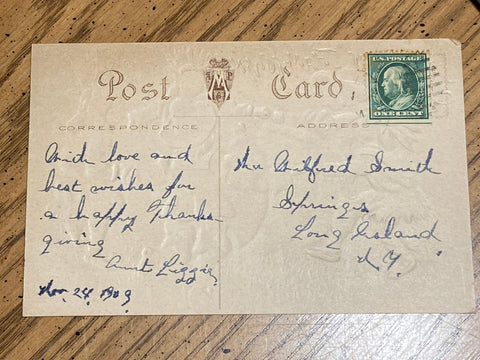 Post Card,
U.S. POSTAGE
ONE CENT
CORRESPONDENCE
ADDRESS
With love and
best wishes for
a happy Thanks-
giving
Aunt Lizzie
Nov. 24. 1909
Mr Wilfred Smith
Springs
Long Island
N.Y.